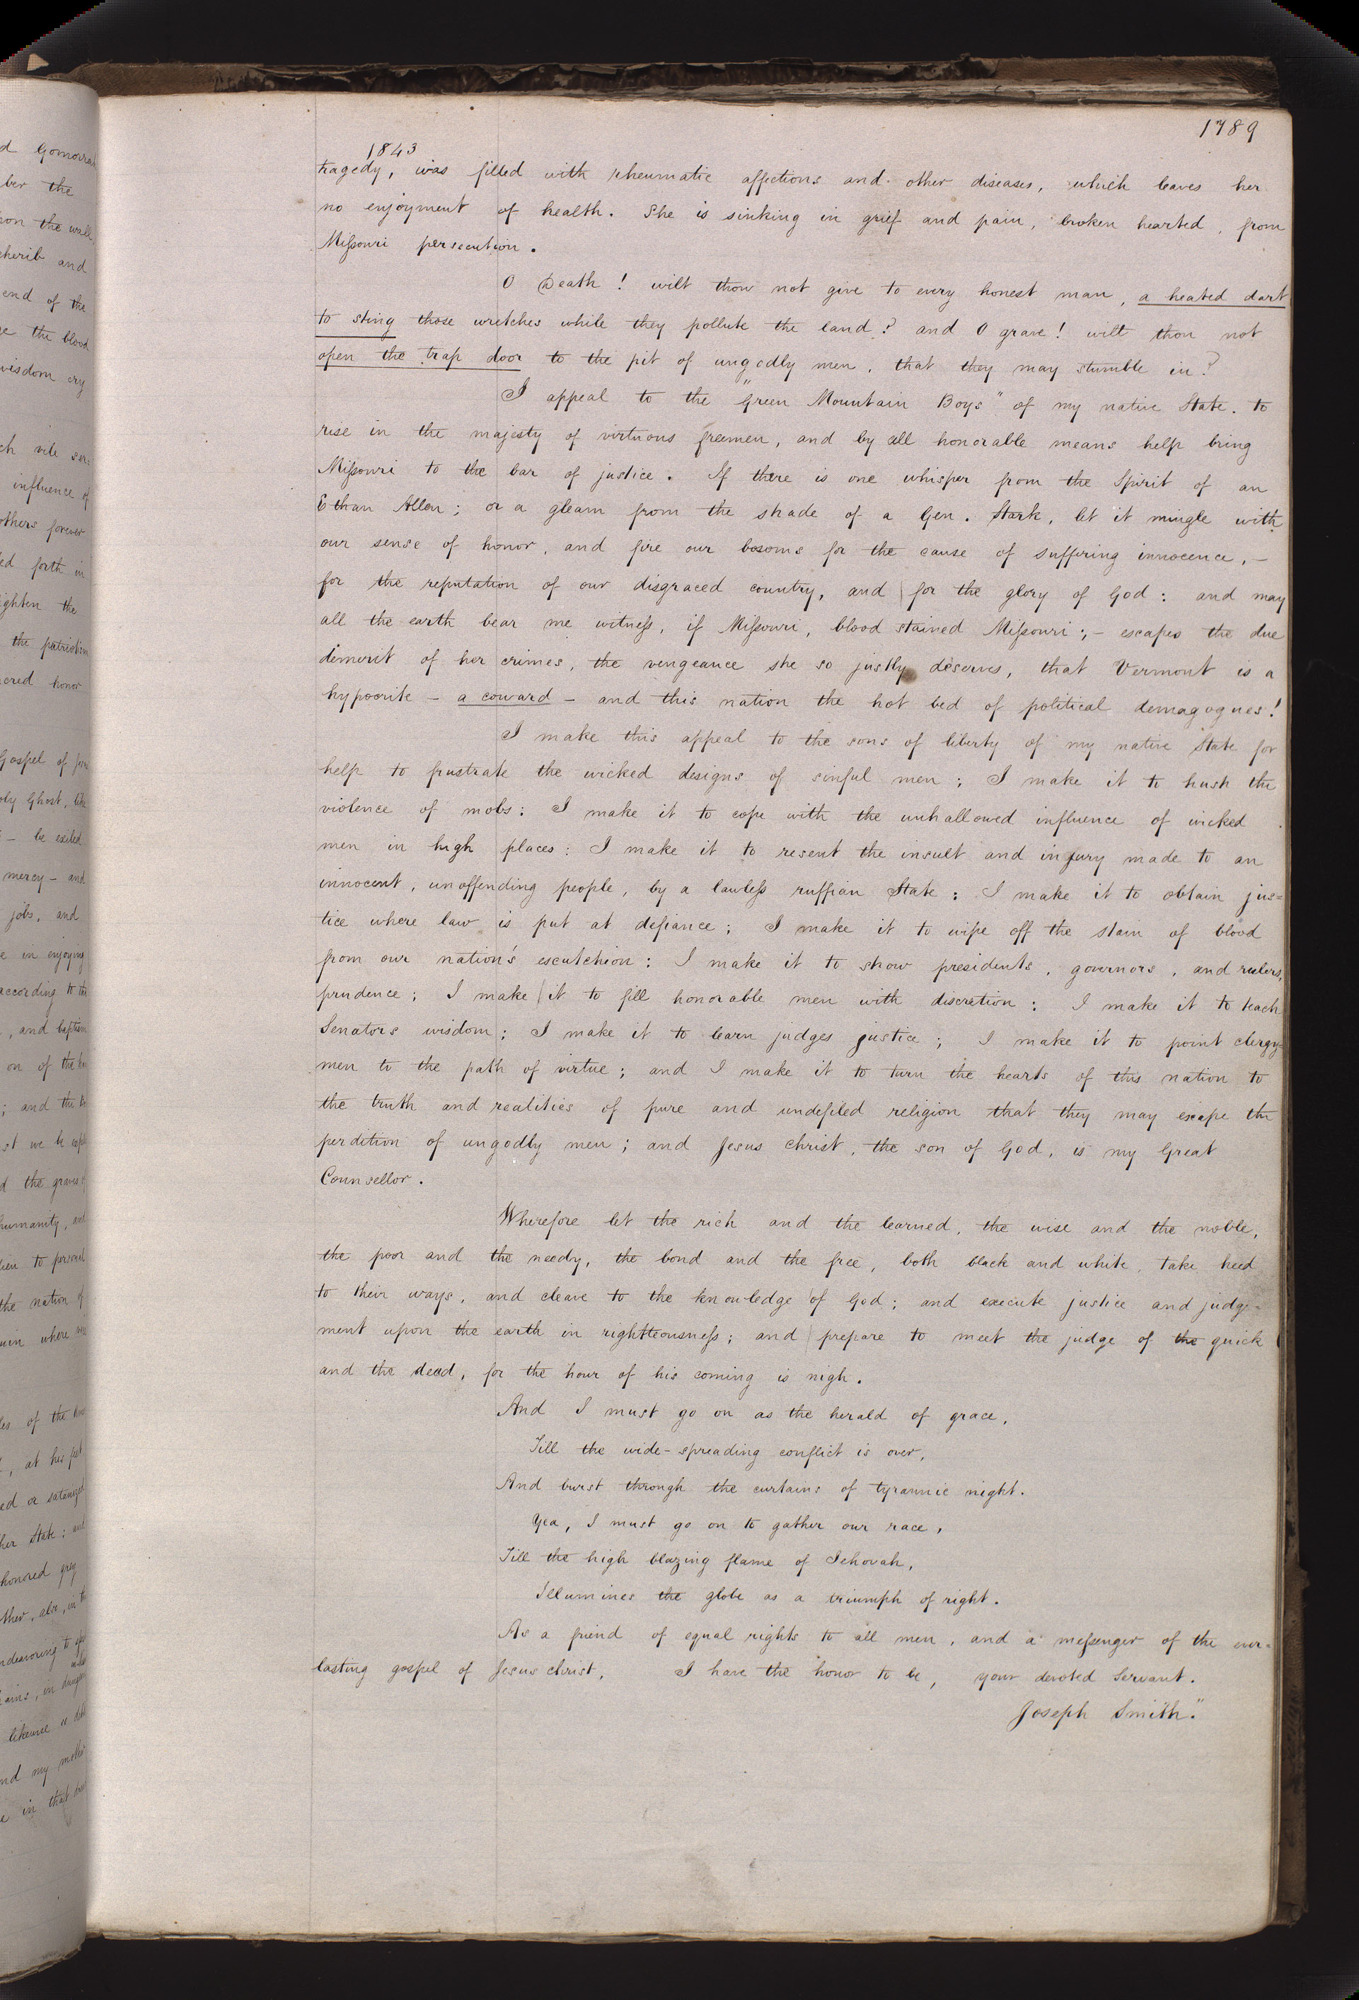 1789
1843
tragedy, was filled with rheumatic affections and other diseases, which leaves her
no enjoyment of health. She is sinking in grief and pain, broken hearted, from
Missouri persecution.
O Death! wilt thou not give to every honest man, a heated dart
to sting those wretches while they pollute the land? and O grave! wilt thou not
open the trap door to the pit of ungodly men, that they may stumble in?
I appeal to the "Green Mountain Boys" of my native State, to
rise in the majesty of virtuous freemen, and by all honorable means help bring
Missouri to the bar of justice. If there is one whisper from the Spirit of an
Ethan Allen; or a gleam from the shade of a Gen. Stark, let it mingle with
our sense of honor, and fire our bosoms for the cause of suffering innocence, —
for the reputation of our disgraced country, and for the glory of God: and may
all the earth bear me witness, if Missouri, blood stained Missouri:, — escapes the due
demerit of her crimes, the vengeance she so justly deserves, that Vermont is a
hypocrite — a coward — and this nation the hot bed of political demagogues!
I make this appeal to the sons of liberty of my native State for
help to frustrate the wicked designs of sinful men; I make it to hush the
violence of mobs: I make it to cope with the unhallowed influence of wicked
men in high places: I make it to resent the insult and injury made to an
innocent, unoffending people, by a lawless ruffian State; I make it to obtain jus=
tice where law is put at defiance; I make it to wipe off the stain of blood
from our nation's escutchion: I make it to show presidents, governors, and rulers,
prudence; I make it to fill honorable men with discretion: I make it to teach
Senators wisdom; I make it to learn judges justice; I make it to point clergy=
men to the path of virtue; and I make it to turn the hearts of this nation to
the truth and realities of pure and undefiled religion that they may escape the
perdition of ungodly men; and Jesus Christ, the son of God, is my Great
Counsellor.
Wherefore let the rich and the learned, the wise and the noble,
the poor and the needy, the bond and the free, both black and white, take heed
to their ways, and cleave to the knowledge of God; and execute justice and judge-
ment upon the earth in righteousness; and prepare to meet the judge of the quick
and the dead, for the hour of his coming is nigh.
And I must go on as the herald of grace,
Till the wide-spreading conflict is over,
And burst through the curtains of tyrannic night.
Yea, I must go on to gather our race,
Till the high blazing flame of Jehovah,
Illumines the globe as a triumph of right.
As a friend of equal rights to all men, and a messenger of the ever-
lasting gospel of Jesus Christ, I have the honor to be, your devoted Servant.
Joseph Smith."